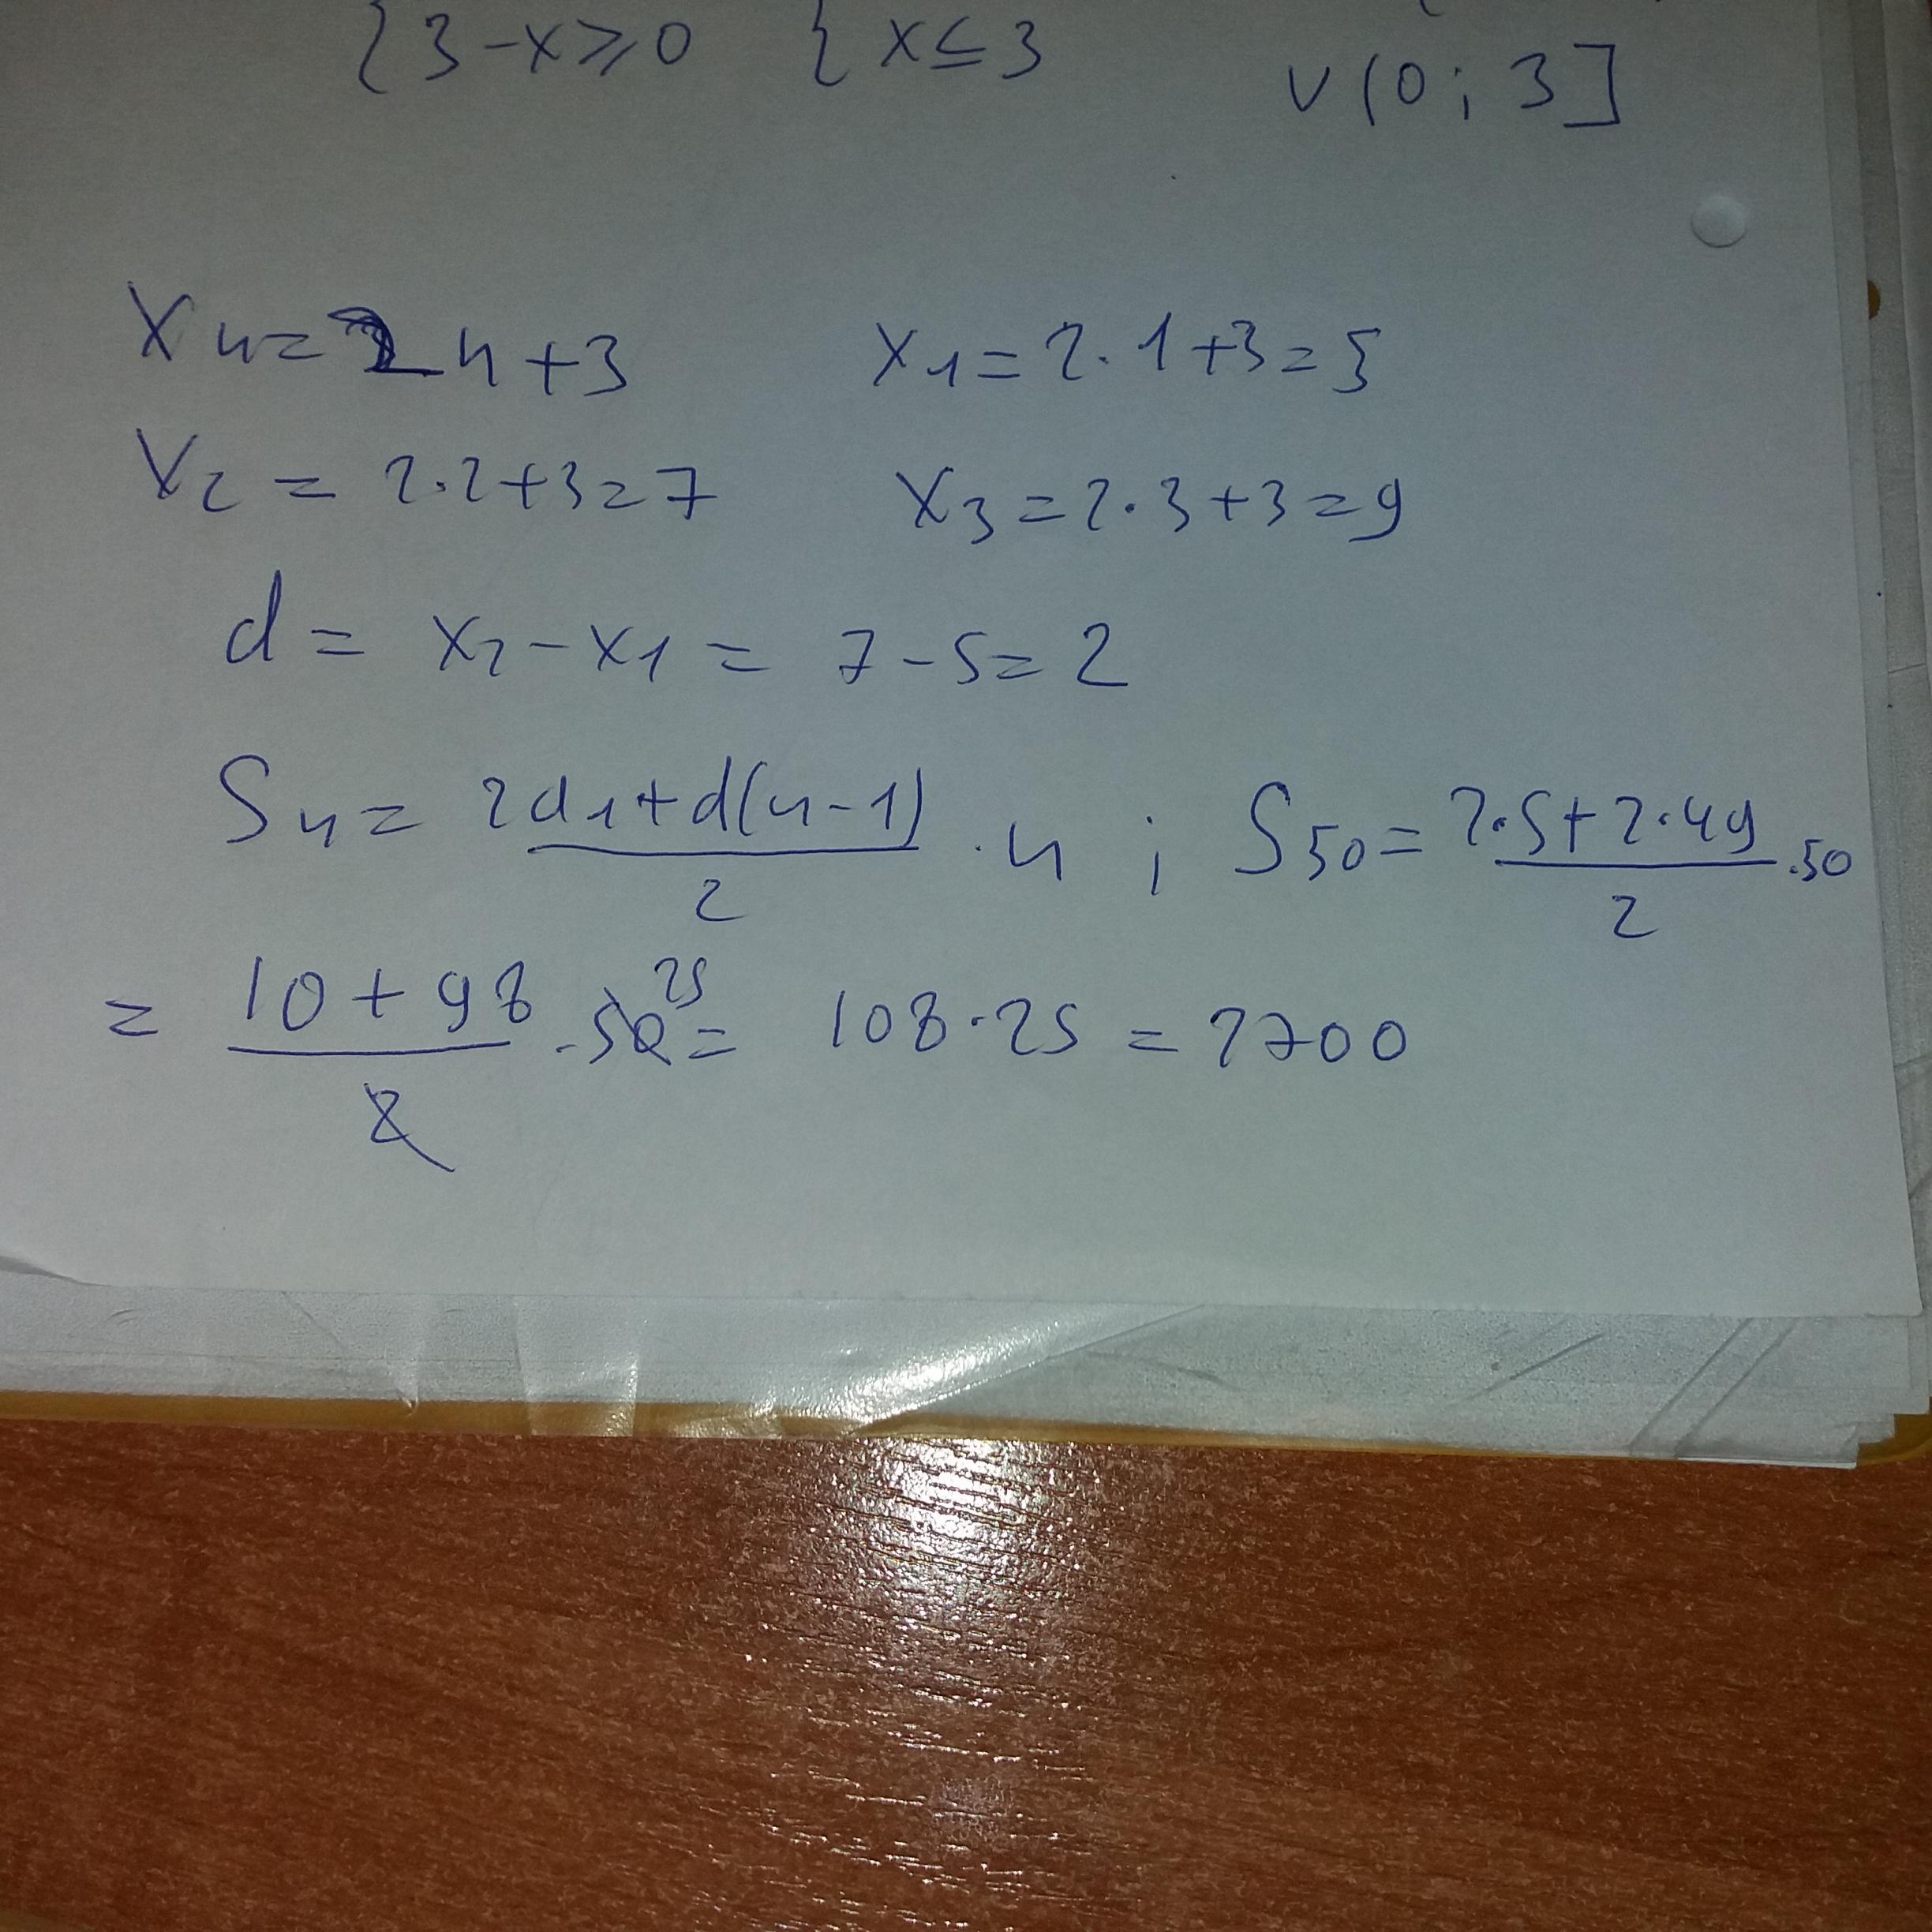 {3-x⩾0 {x≤3 ∪(0;3]
Xn=2n+3 x1=2·1+3=5
X2=2·2+3=7 x3=2·3+3=9
d=x2-x1=7-5=2
Sn=(2a1+d(n-1))/2·n; S50=(2·5+2·49)/2·50
=(10+98)/2·50 25=108·25=2700